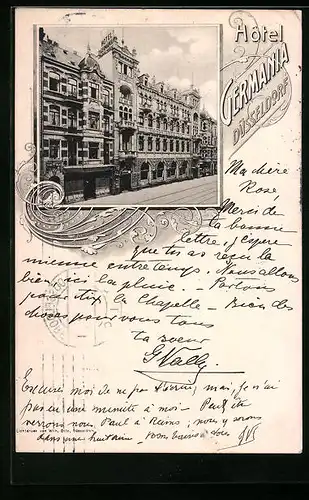 Hôtel
GERMANIA
DÜSSELDORF
Ma chère
Rose,
Merci de
ta bonne
lettre, j'espère
que tu as reçu la
mienne entre temps. Nous allons
bien, ici la pluie. - Partons
pour Aix la Chapelle - Bien des
choses pour vous tous
ta soeur
G Vally
Excuses moi de ne pas t'écrire, mais je n'ai
pas eu une minute à moi - Peut être
verrons nous Paul à Reims, nous y serons
dans une huitaine - bons baisers à tous